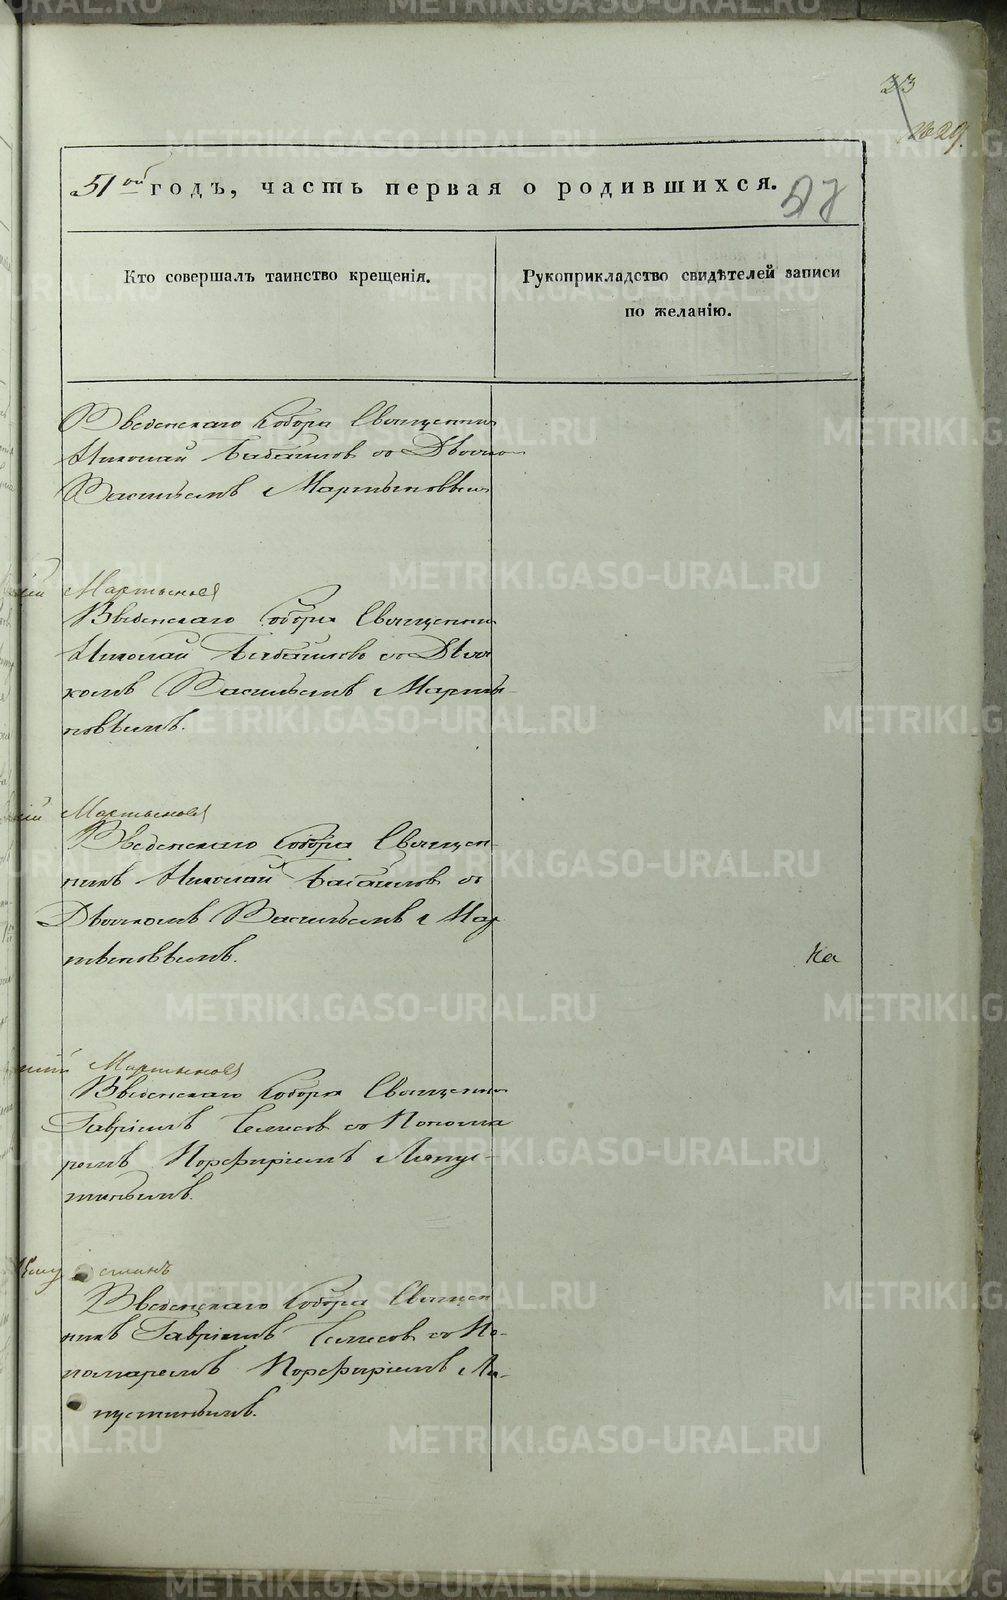 33
29.
51ой годъ, часть первая о родившихся.
Кто совершалъ таинство крещенія.
Рукоприкладство свидѣтелей записи
по желанію.
Введенскаго Собора Священникъ
Николай со Дьячко
Васильемъ Мартыновым
Мартыновъ
Введенскаго Собора Священни
Николай со Дьяч
комъ Васильемъ Марты-
новымъ.
Мартыновъ
Введенскаго Собора Священ-
никъ Николай со
Дьячкомъ Васильемъ Мар
тыновымъ.
Ка
Мартыновъ
Введенскаго Собора Священни
Гавріилъ со Понома
ремъ Порфиріемъ Лапус-
тинымъ.
Введенскаго Собора Священ
никъ Гавріилъ со По-
номаремъ Порфиріемъ Ла-
пустинымъ.
METRIKI.GASO-URAL.RU